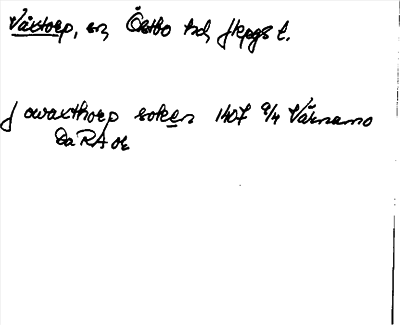 Våxtorp, sn Östbo hd Jkpgs l.
J owaxthorp soken 1407 9/4 Värnamo
Da RA or